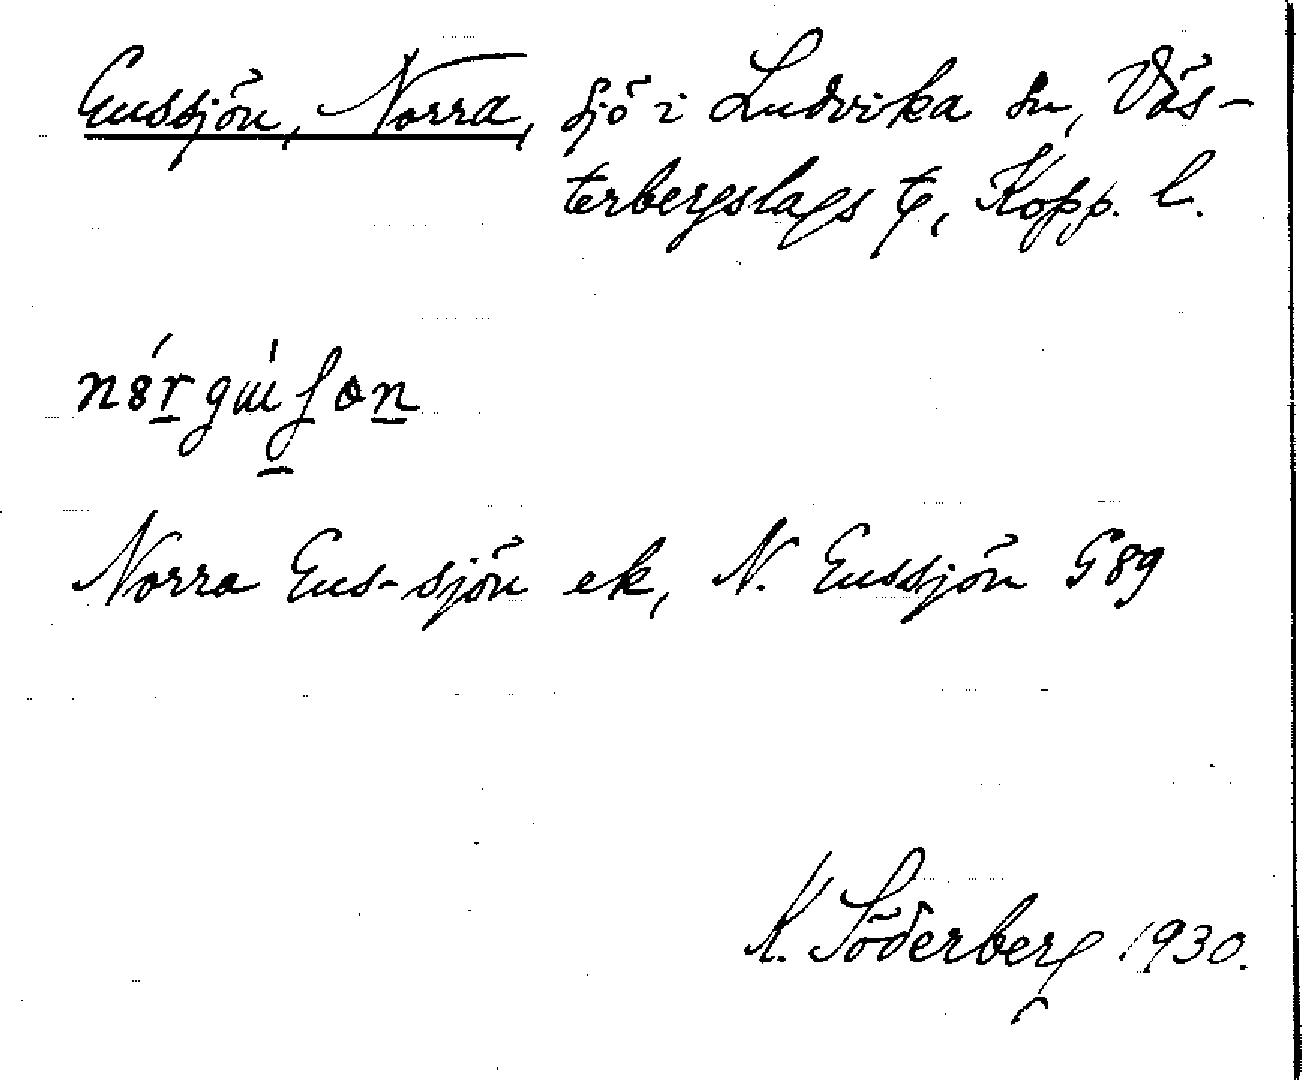 Eussjön, Norra, sjö i Ludvika sn, Väs-
terbergslags tg, Kopp. l.
Norra Eus-sjön ek, N. Eussjön G 89
K. Söderberg 1930.